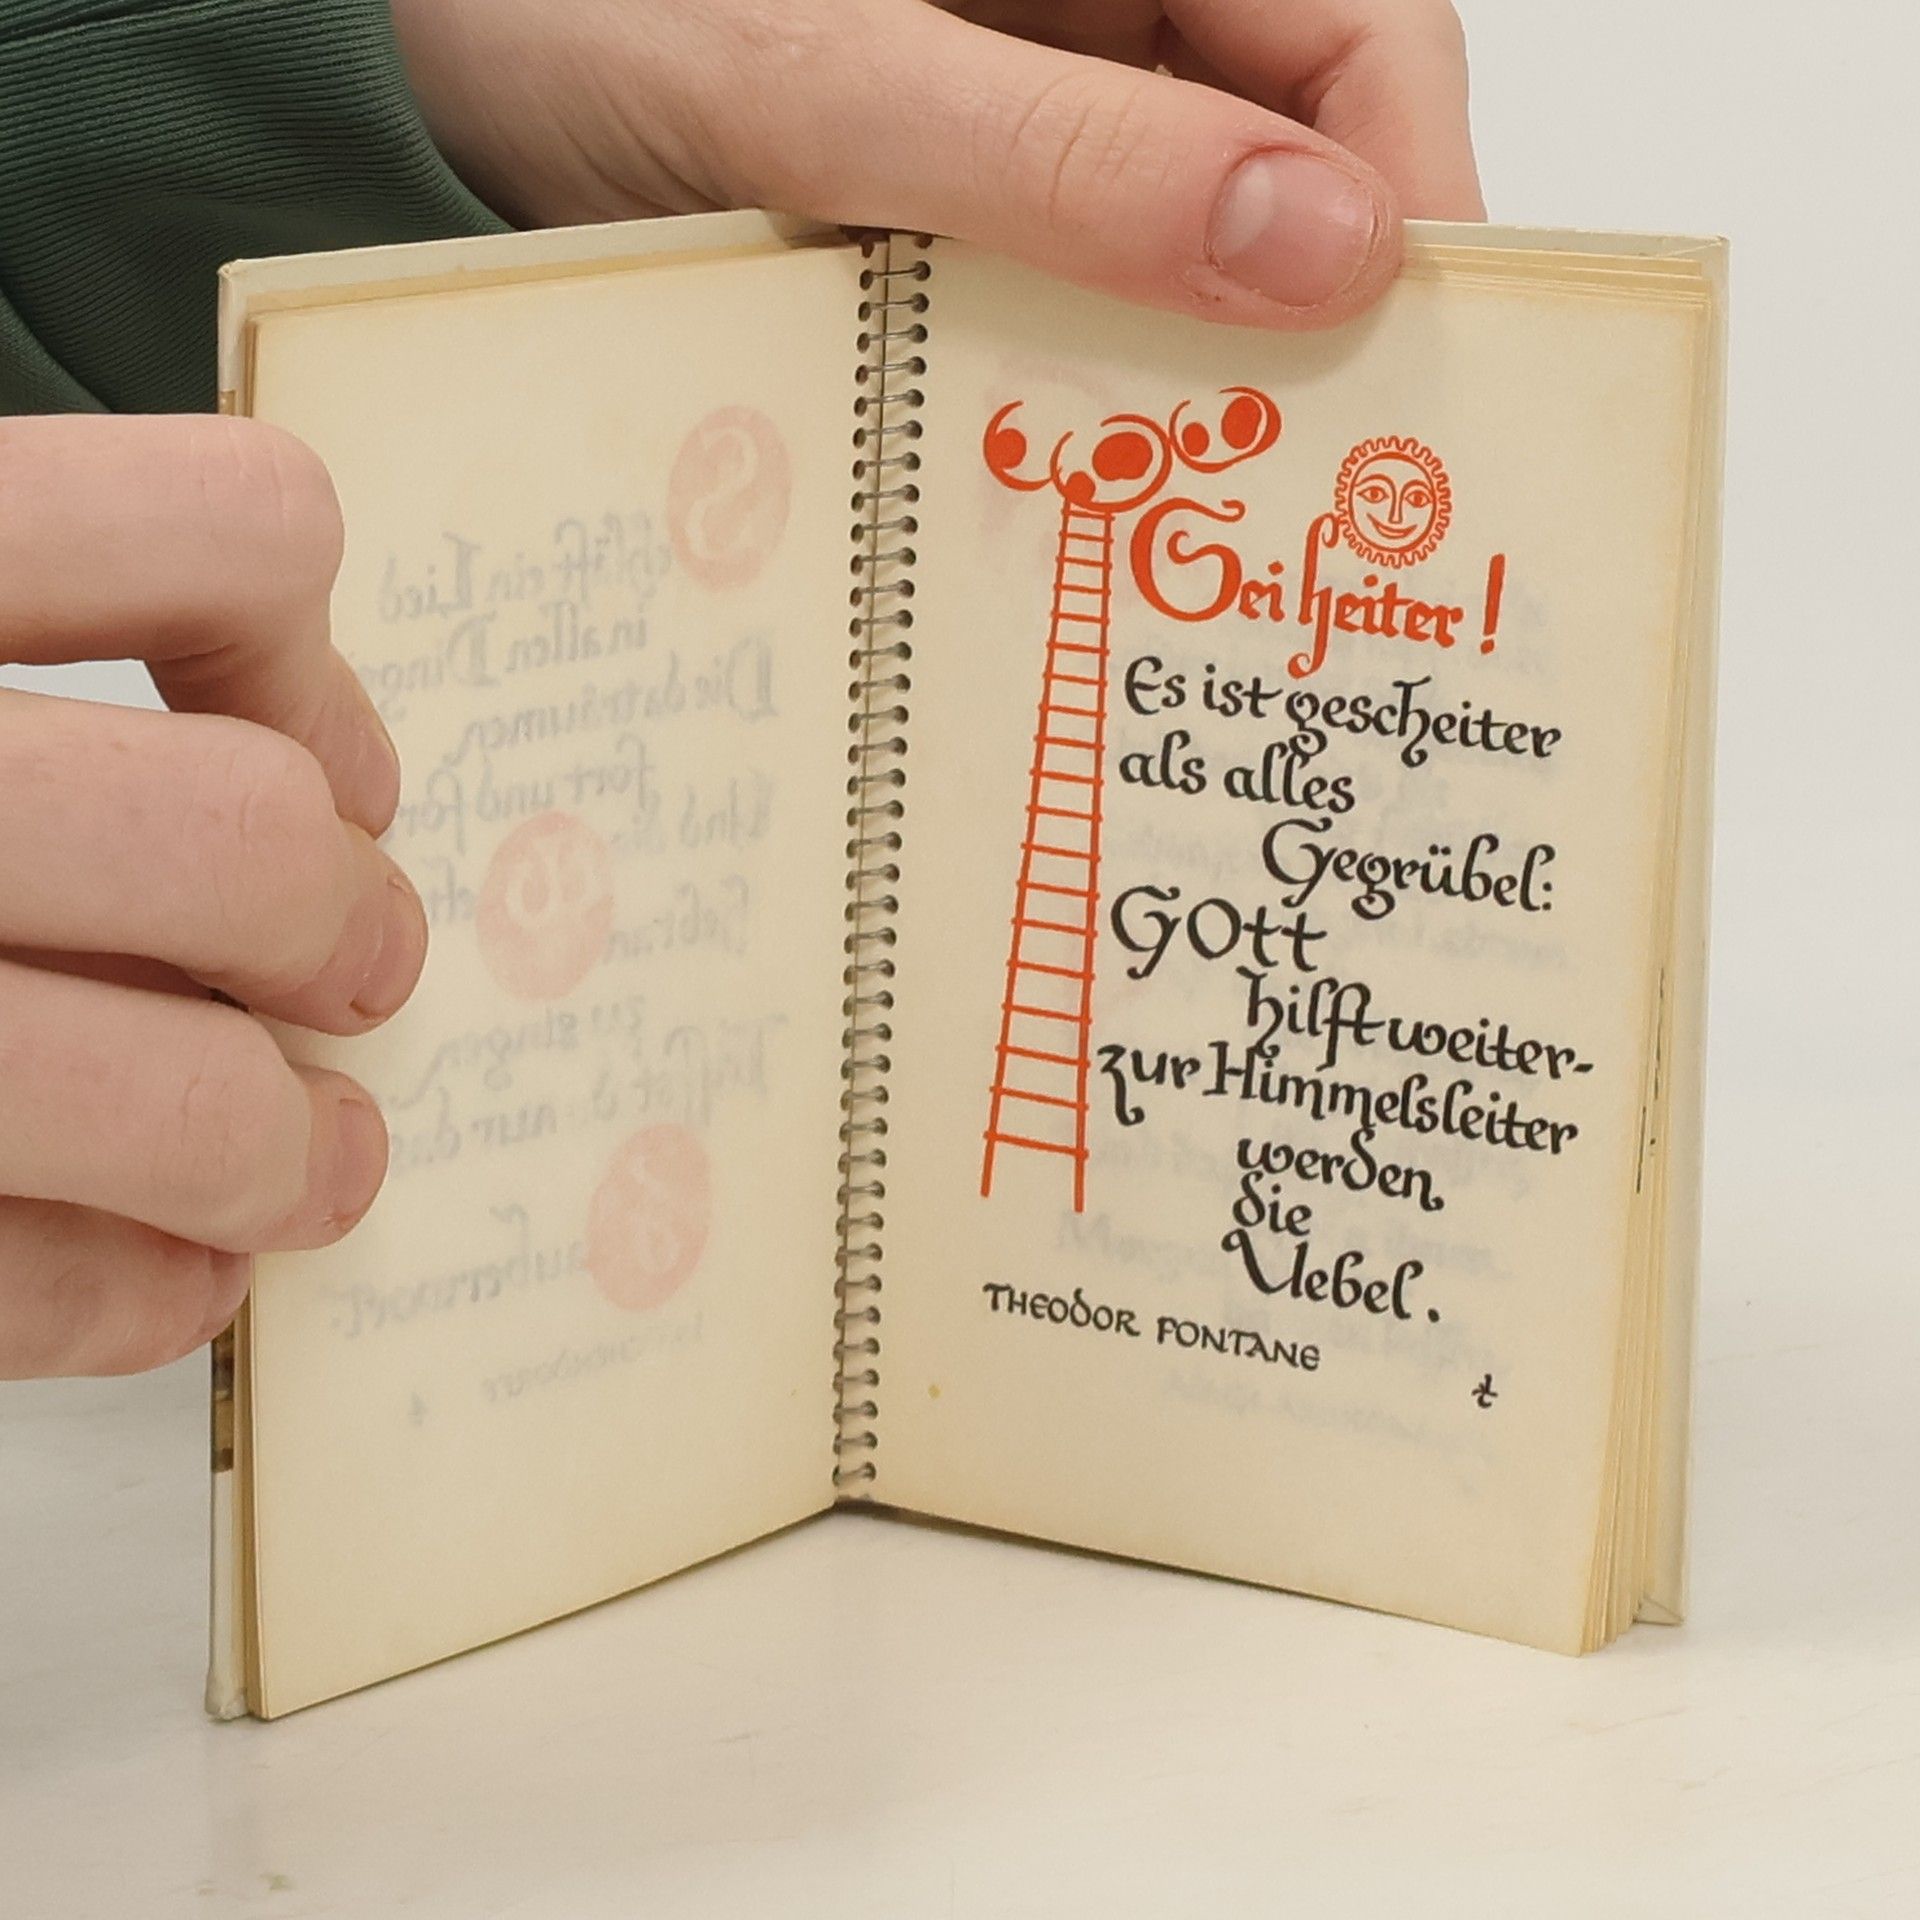 Sei heiter!
Es ist gescheiter
als alles
Gegrübel:
GOtt
hilft weiter-
zur Himmelsleiter
werden
die
Uebel.
THEODOR FONTANE